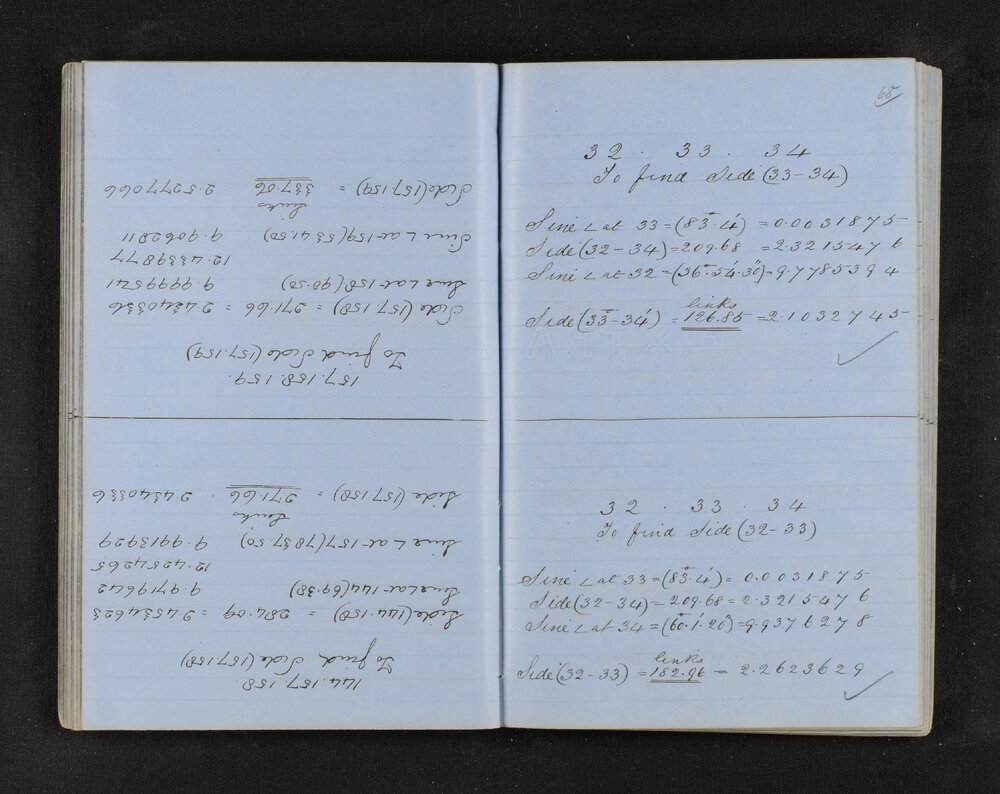 144.157.158
To find Side (157.158)
Side (144.158) = 284.09 = 2.4534623
Sine L at 144 (69.38) 9.9719642
12.4254265
Sine L at 157 (78 37.50) 9.9913929
links
Side (157.158) = 271.66 . 2.4340336
157.158.159.
To find Side (157.159)
Side (157.158) = 271.66 = 2.4340336
Sine L at 158 (90.50) 9.9999541
12.4339877
Sine L at 159 (53 41.50) 9.9062811
links
Side (157.159) = 337.06 2.5277066
68
32 . 33 . 34
To find Side (33-34)
Sine ∠ at 33 = (83°.4') = 0.0031875
Side (32-34) = 209.68 = 2.3215476
Sine ∠ at 32 = (36°.54'.30") = 9.7785394
links
Side (33-34) = 126.85 = 2.1032745
32 . 33 . 34
To find Side (32-33)
Sine ∠ at 33 = (83°.4') = 0.0031875
Side (32-34) = 209.68 = 2.3215476
Sine ∠ at 34 = (60°.1.20") = 9.9376278
links
Side (32-33) = 182.96 = 2.2623629